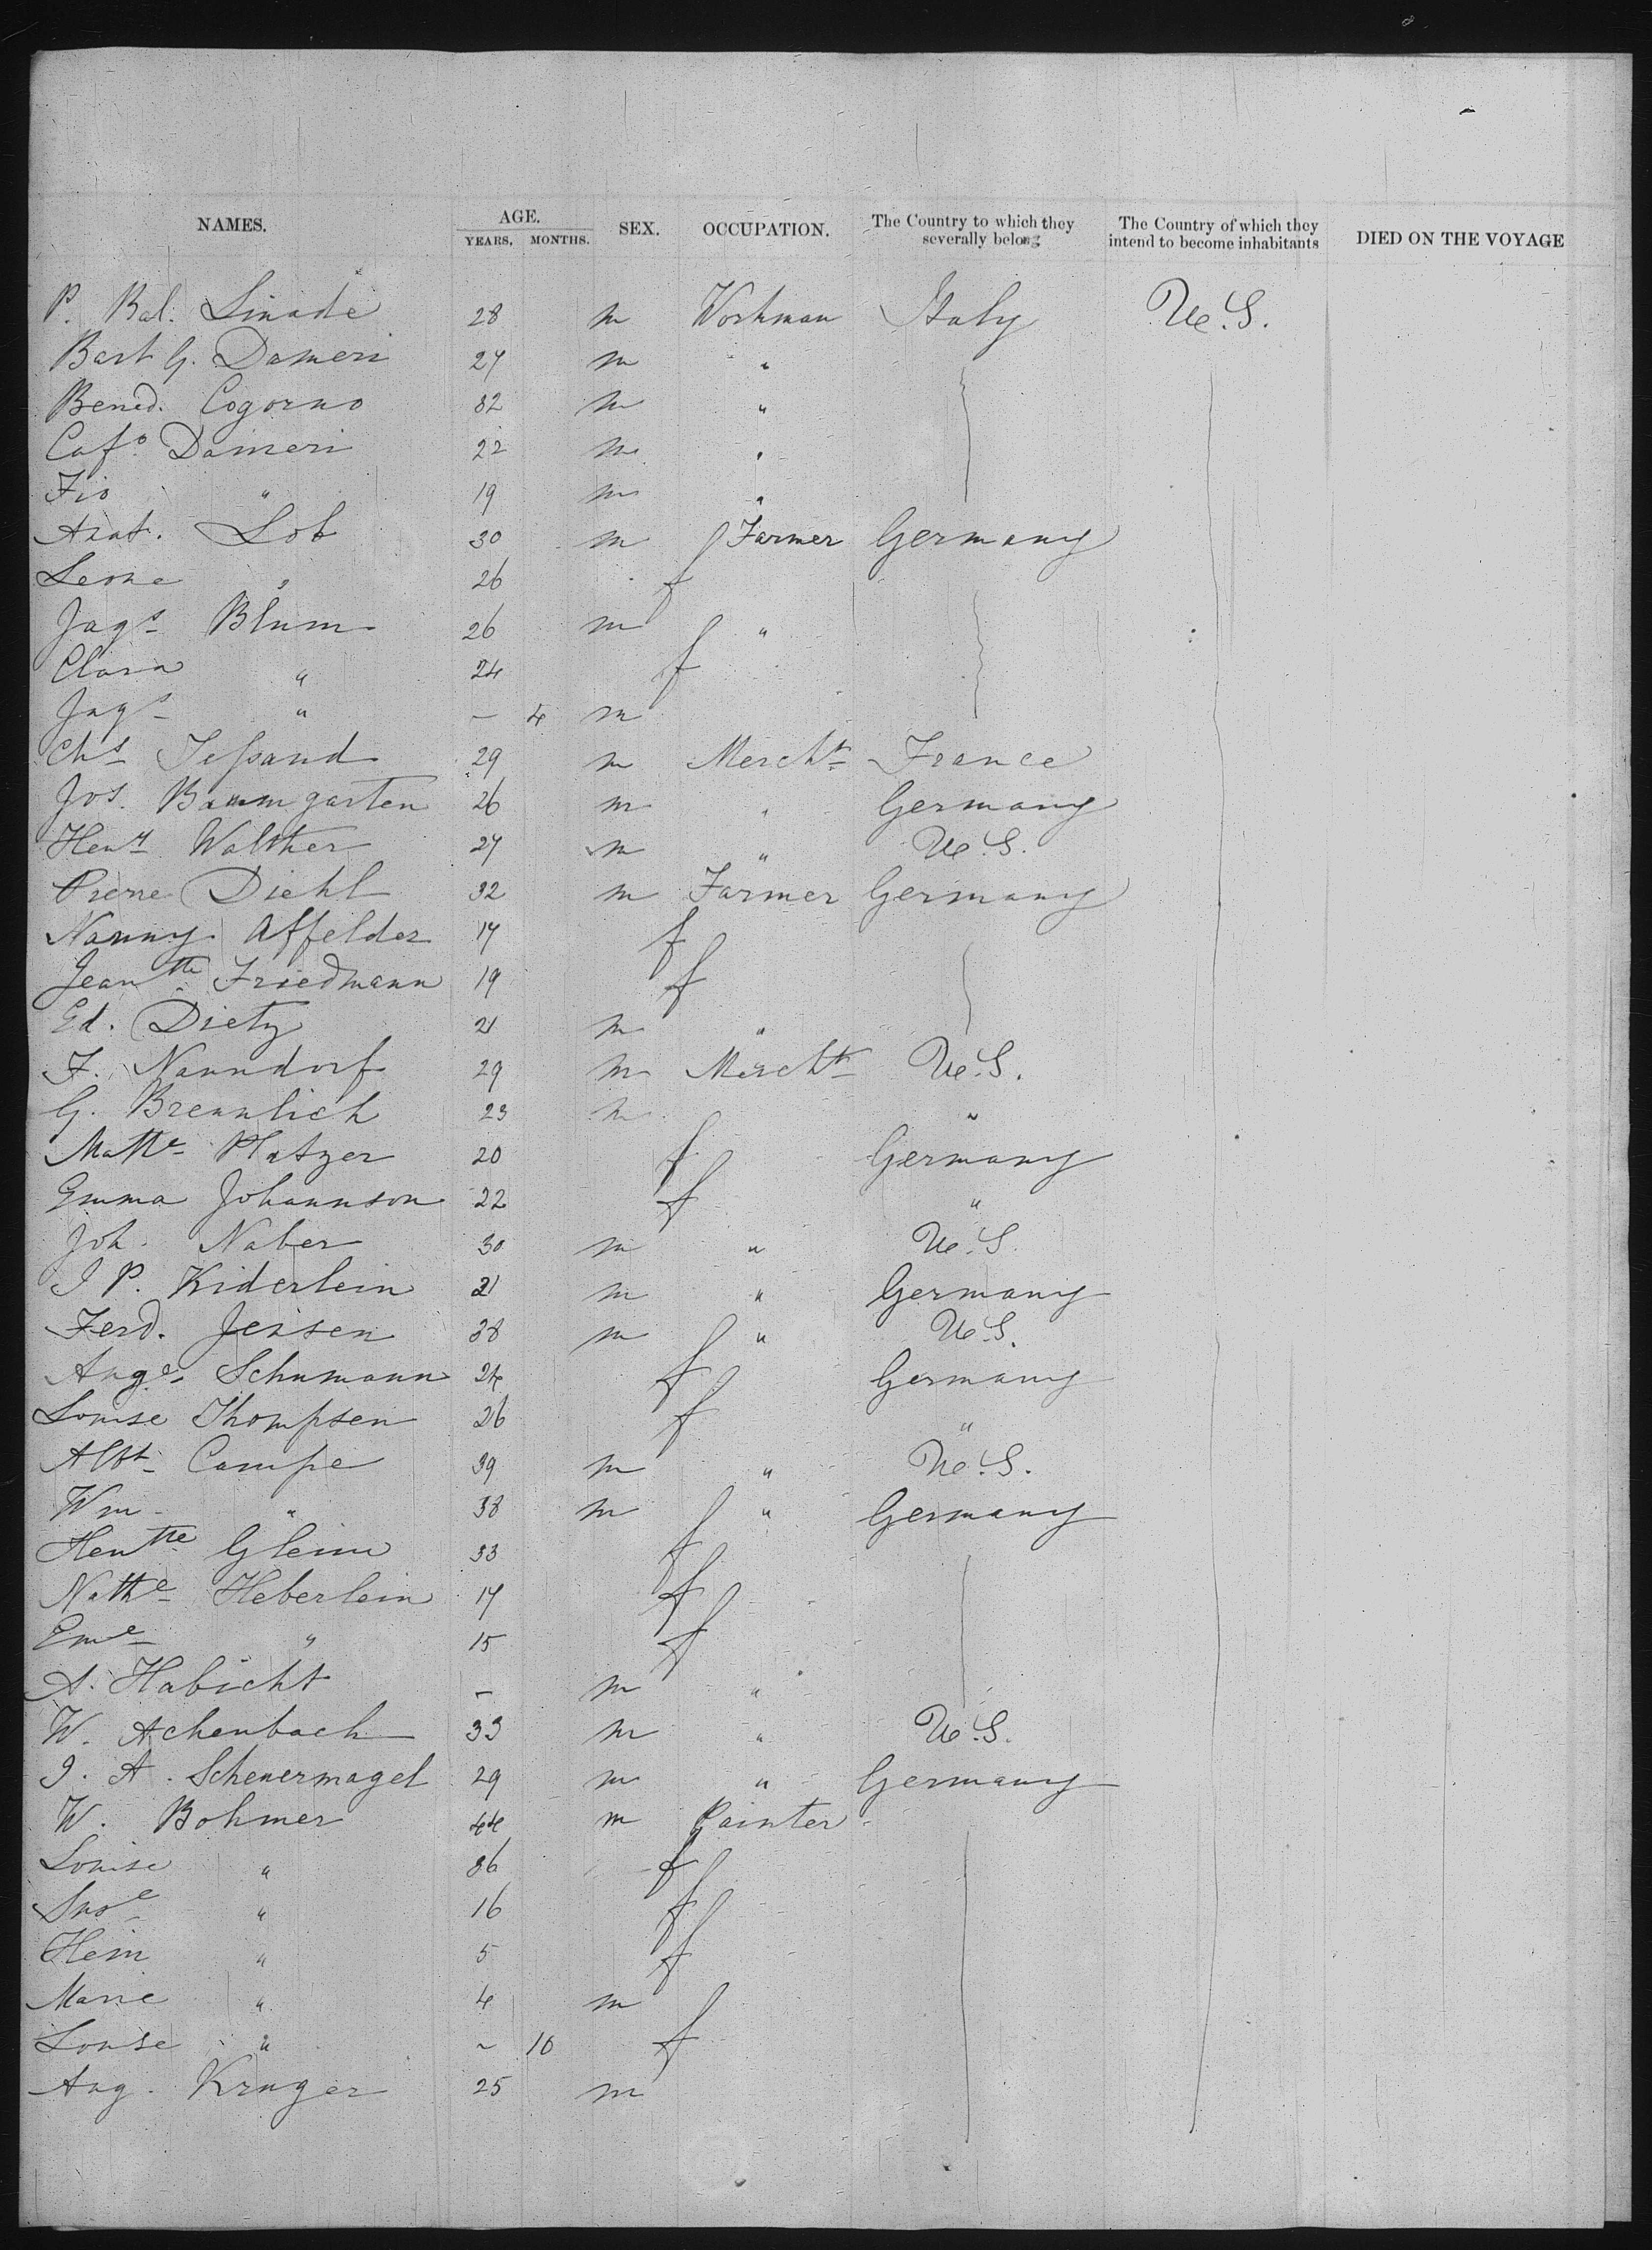 NAMES. AGE. SEX. OCCUPATION. The Country to which they severally belong The Country of which they intend to become inhabitants DIED ON THE VOYAGE
YEARS. MONTHS.
P. Bal. Linade 28 m Workman Italy U.S.
Bart G. Dameri 27 m "
Bened. Cogorno 32 m "
Cafo. Dameri 22 m "
Fio " 19 m "
Lob 30 m Farmer Germany
Leone " 26 f
Jaqs Blum 26 m "
Clara " 24 f
Jaqs " – 4 m
Chs Jessand 29 m Mercht France
Jos. Baumgarten 26 m " Germany
Heny Walther 27 m " U.S.
Pierre Diehl 32 m Farmer Germany
Nanny Affelder 17 f
Jeantte Friedmann 19 f
Ed. Dietz 21 m "
F. Nanndorf 29 m Mercht U.S.
G. Brennlich 23 m "
Mathe Platzer 20 f Germany
Emma Johannson 22 f "
Joh. Naber 30 m " U.S.
J P. Kiderlein 21 m " Germany
Ferd. Jensen 38 m " U.S.
Auge. Schumann 24 f Germany
Louise Thompsen 26 f "
Albt Campe 39 m " U.S.
Wm " 38 m " Germany
Hentte Gleim 33 f
Nathe Heberlein 17 f
Eme " 15 f
A. Habicht – m "
W. Achenbach 33 m " U.S.
J. A. Schenermagel 29 m " Germany
W. Bohmer 44 m Painter
Louise " 36 f
" 16 f
Hein " 5 f
Marie " 4 m
Louise " – 10 f
Aug. Kruger 25 m